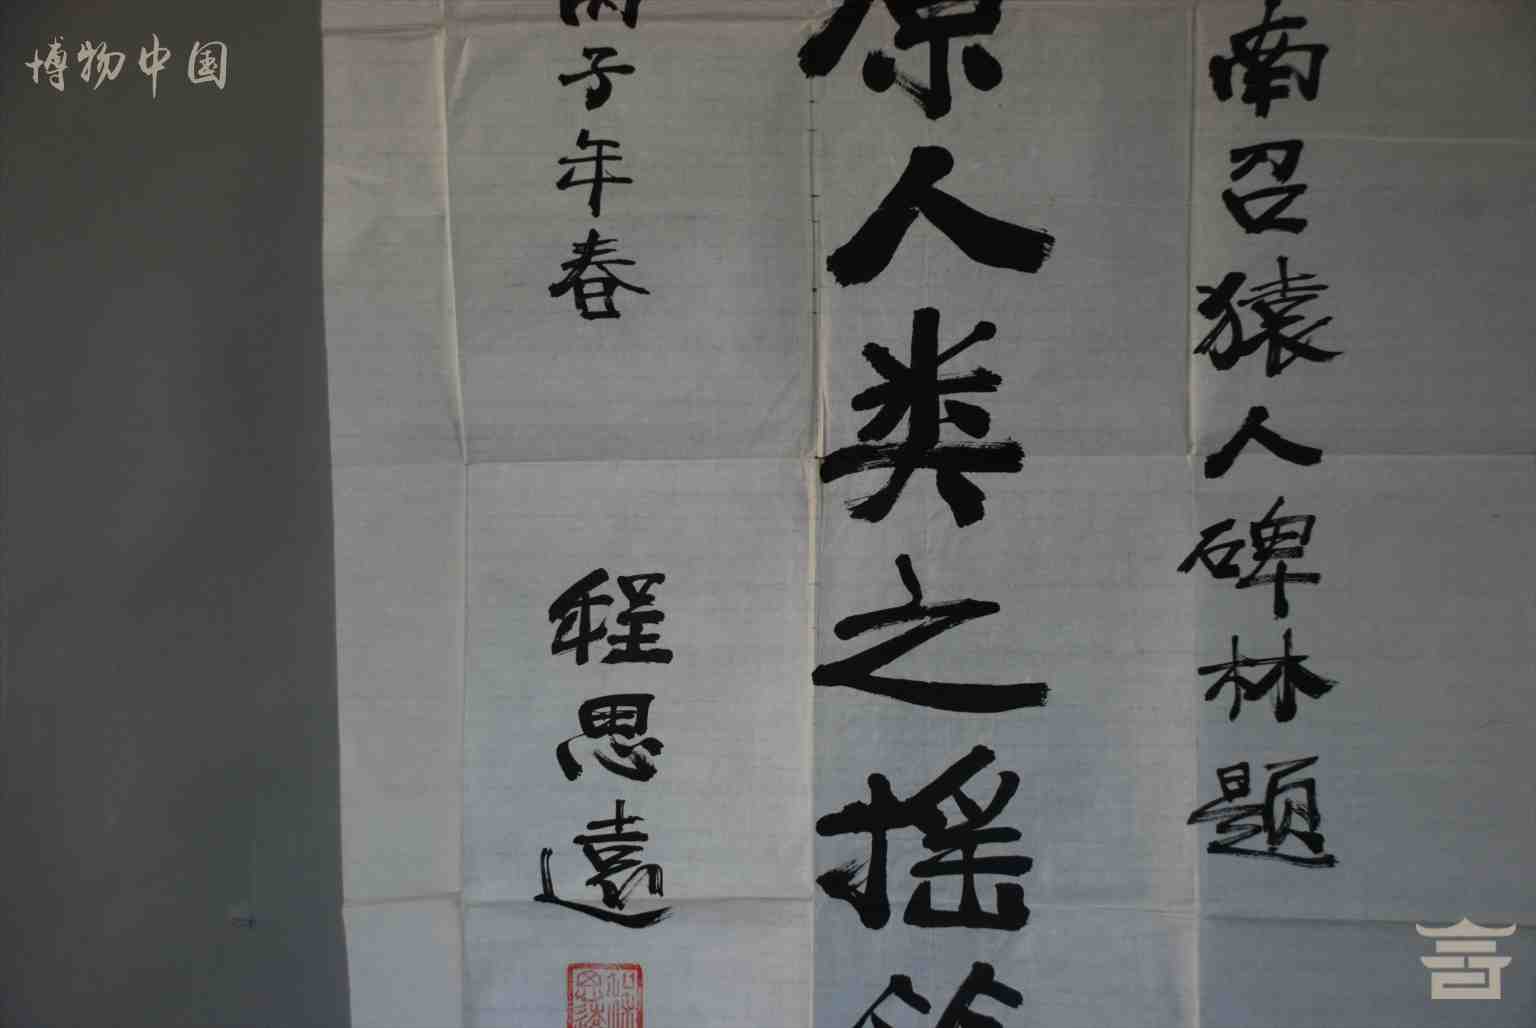 博物中国
南召猿人碑林题
原人类之摇篮
丙子年春
程思遠